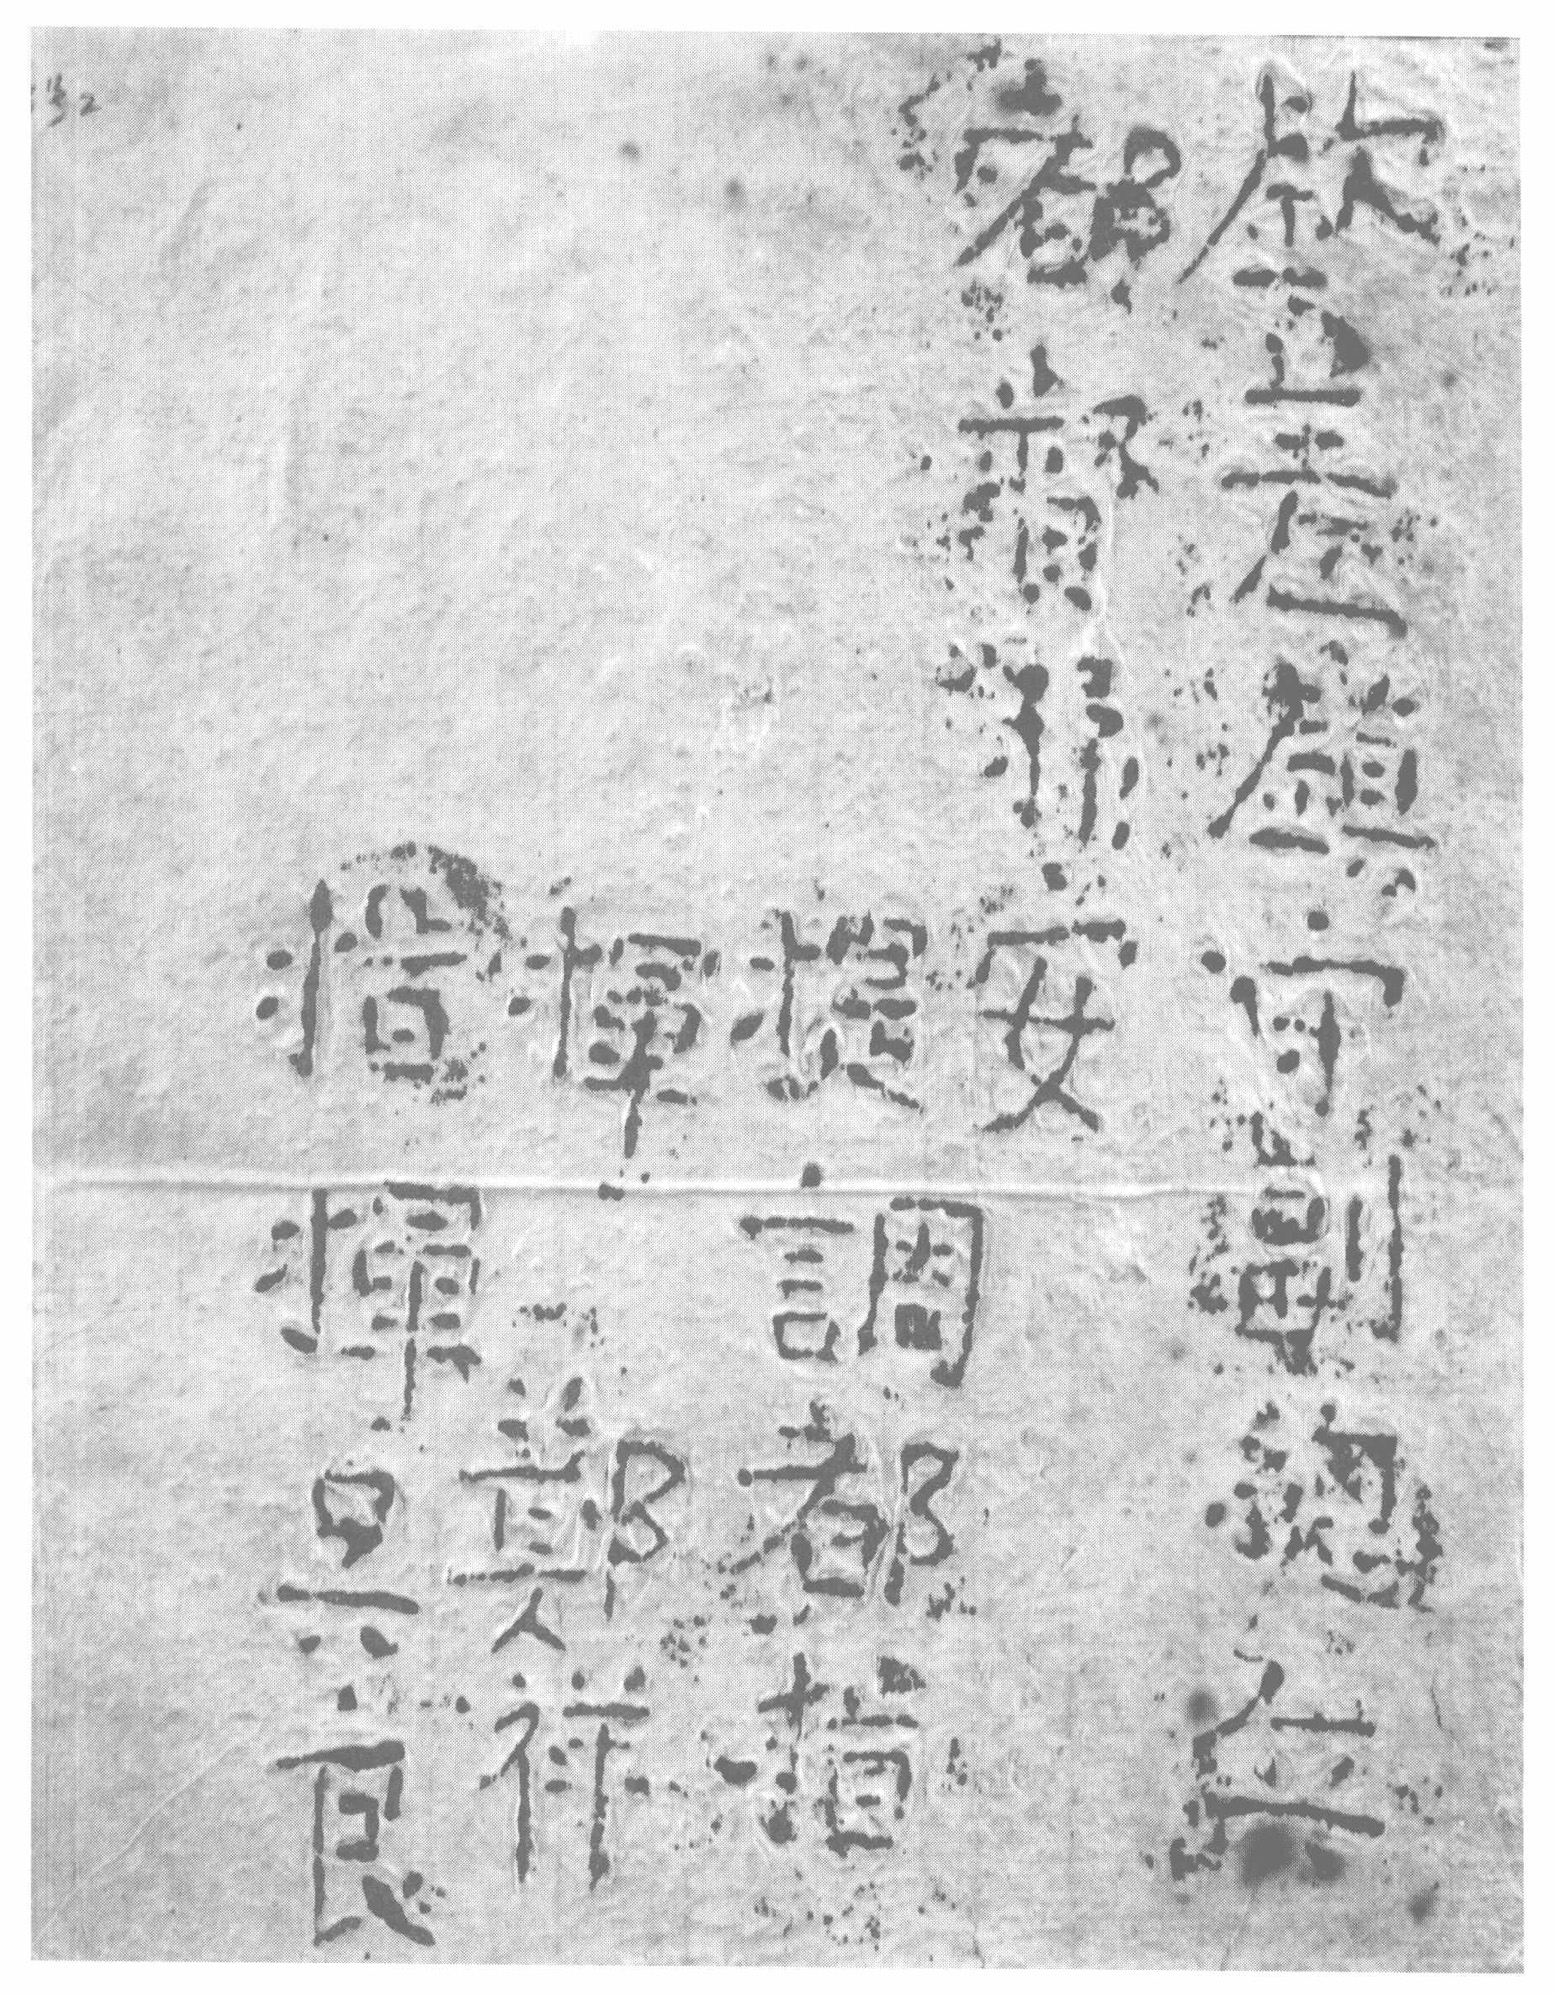 欽差鎮守副總兵
都督孫安
提調都指
揮鄭祥
指揮吳良